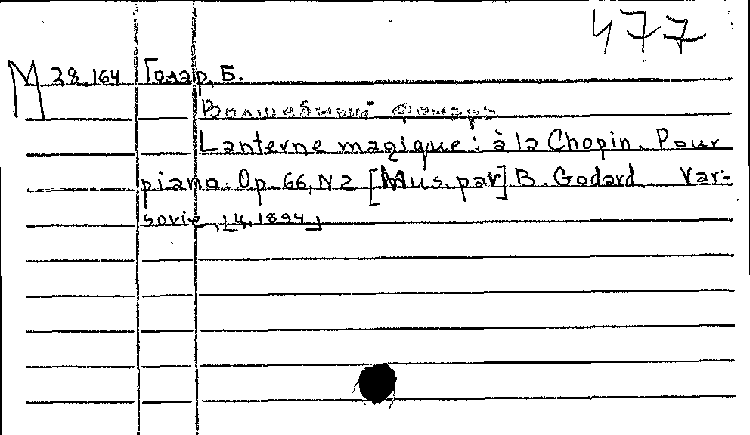 477
M 28.164 Годар, Б.
Волшебный фонарь
Lanterne magique: à la Chopin. Pour
piano. Op. 66, N2 [Mus. par] B. Godard. Var-
sovie,